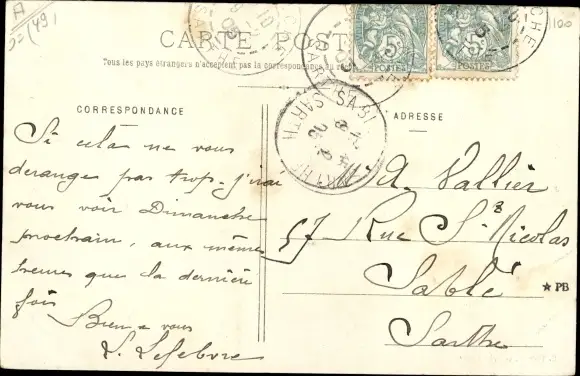 A
100
CARTE POST
Tous les pays étrangers n'acceptent pas la correspondance au
5 5
POSTES POSTES
SARTHE
CORRESPONDANCE
Si cela ne vous
deranges pas trop. j'irai
vous voir Dimanche
prochain, aux mêmes
heures que la dernière
fois
Bien a vous
L. Lefebvre
ADRESSE
A. Vallier
57 Rue St Nicolas
Sablé
Sarthe
★ PB